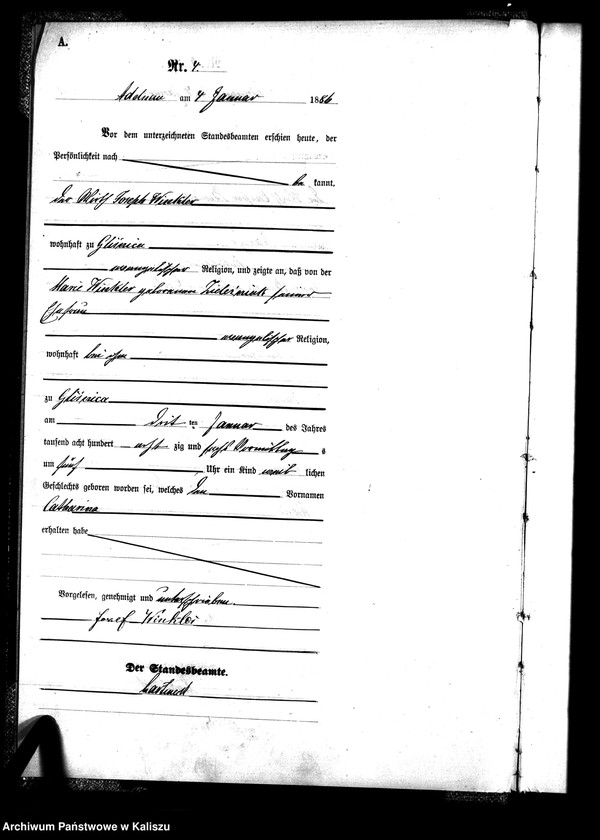 A.
Nr. 4.
Adelnau am 4 Januar 1886
Vor dem unterzeichneten Standesbeamten erschien heute, der
Persönlichkeit nach
be kannt,
der Joseph Winkler
wohnhaft zu Gliśnica
evangelischer Religion, und zeigte an, daß von der
Marie Winkler geborenen seiner
Ehefrau
evangelischer Religion,
wohnhaft bei ihm
zu Gliśnica
am drit ten Januar des Jahres
tausend acht hundert acht zig und sechs Vormittag s
um fünf Uhr ein Kind weib lichen
Geschlechts geboren worden sei, welches den Vornamen
Catharina
erhalten habe
Vorgelesen, genehmigt und unterschrieben.
Josef Winkler
Der Standesbeamte.
Archiwum Państwowe w Kaliszu